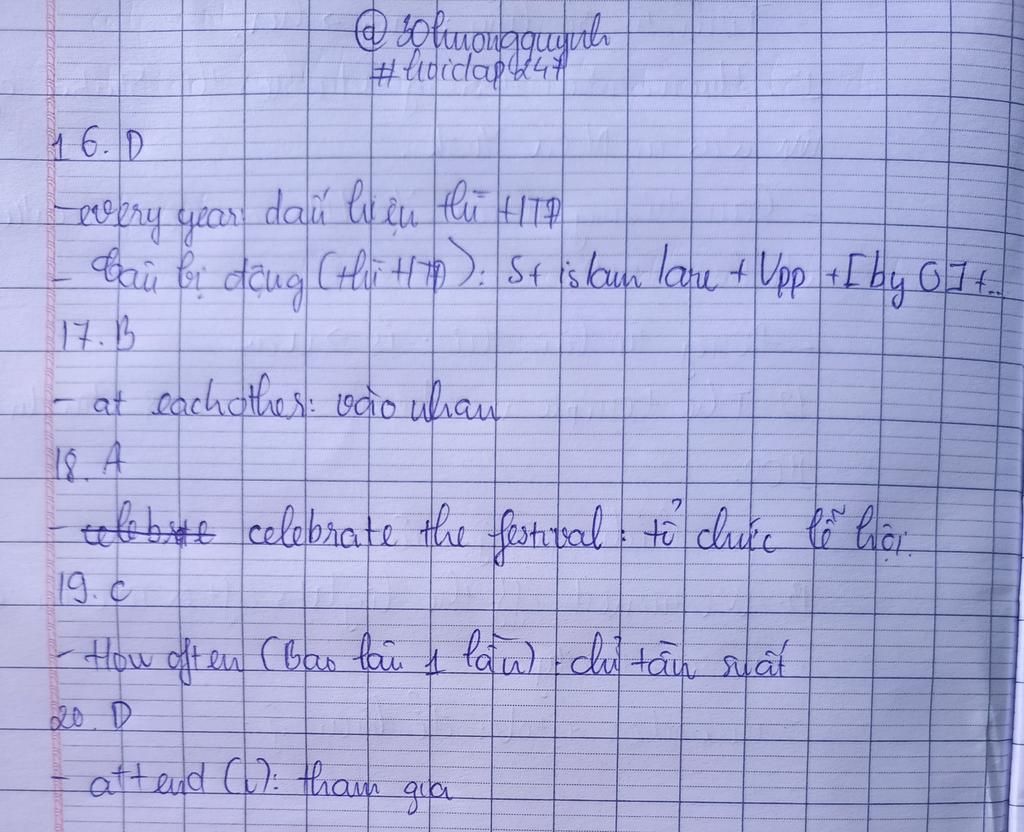 @ 30huongquynh
#hoidap247
16. D
- every year: dấu hiệu thì HTĐ
- Câu bị động (thì HTĐ): S + is/am/are + Vpp + [by O] + ...
17. B
- at eachother: vào nhau
18. A
- celebrate the festival: tổ chức lễ hội.
19. C
- How often (bao lâu 1 lần): chỉ tần suất
20. D
- attend (v): tham gia